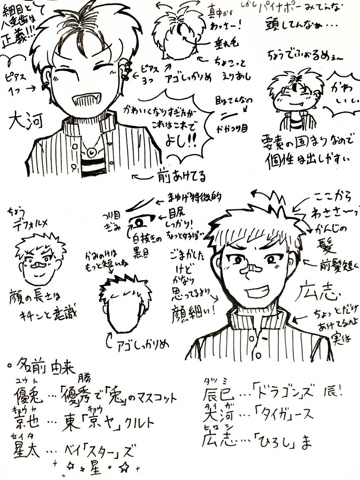 細目と
人生歯は
正義!!!
真中から
わっさー!
しかしパイナポーみてぇな
頭してんなぁ…
垂れ毛
ちょこっと
えりあし
ピアス
1っ
ピアス
3っ
アゴしっかりめ
大河
かわいくなりすぎたが
これはこれで
よし!!
目はてんなの
かやつり目
ちょうでふぉるめぇ〜
かわ
いい
要素の固まりなので
個性は出しやすい
←前あけてる
ちょう
デフォルメ
顔の長さは
キチンと意識
つり目
ぎみ
まゆげ特徴的
目尻
しっかり!
なってるはず…
白抜きの
黒目
かみのけは
もっと短いな
アゴしっかりめ
ごまかした
けど
かなり
思ってるより
顔細い!
ここから
わささ〜っ
かんじの
髪
前髪短く
広志
ちょっとだけ
あけてるんだよ
実は
•名前由来
優兎…「優勝で「兎」のマスコット
ユウト
京也…東「京ヤ」クルト
キョウヤ
星太…ベイ「スター」ズ
セイタ
星
辰巳…「ドラゴン」ズ 辰!
タツミ
大河…「タイガ」ース
タイガ
広志…「ひろし」ま
ヒロシ